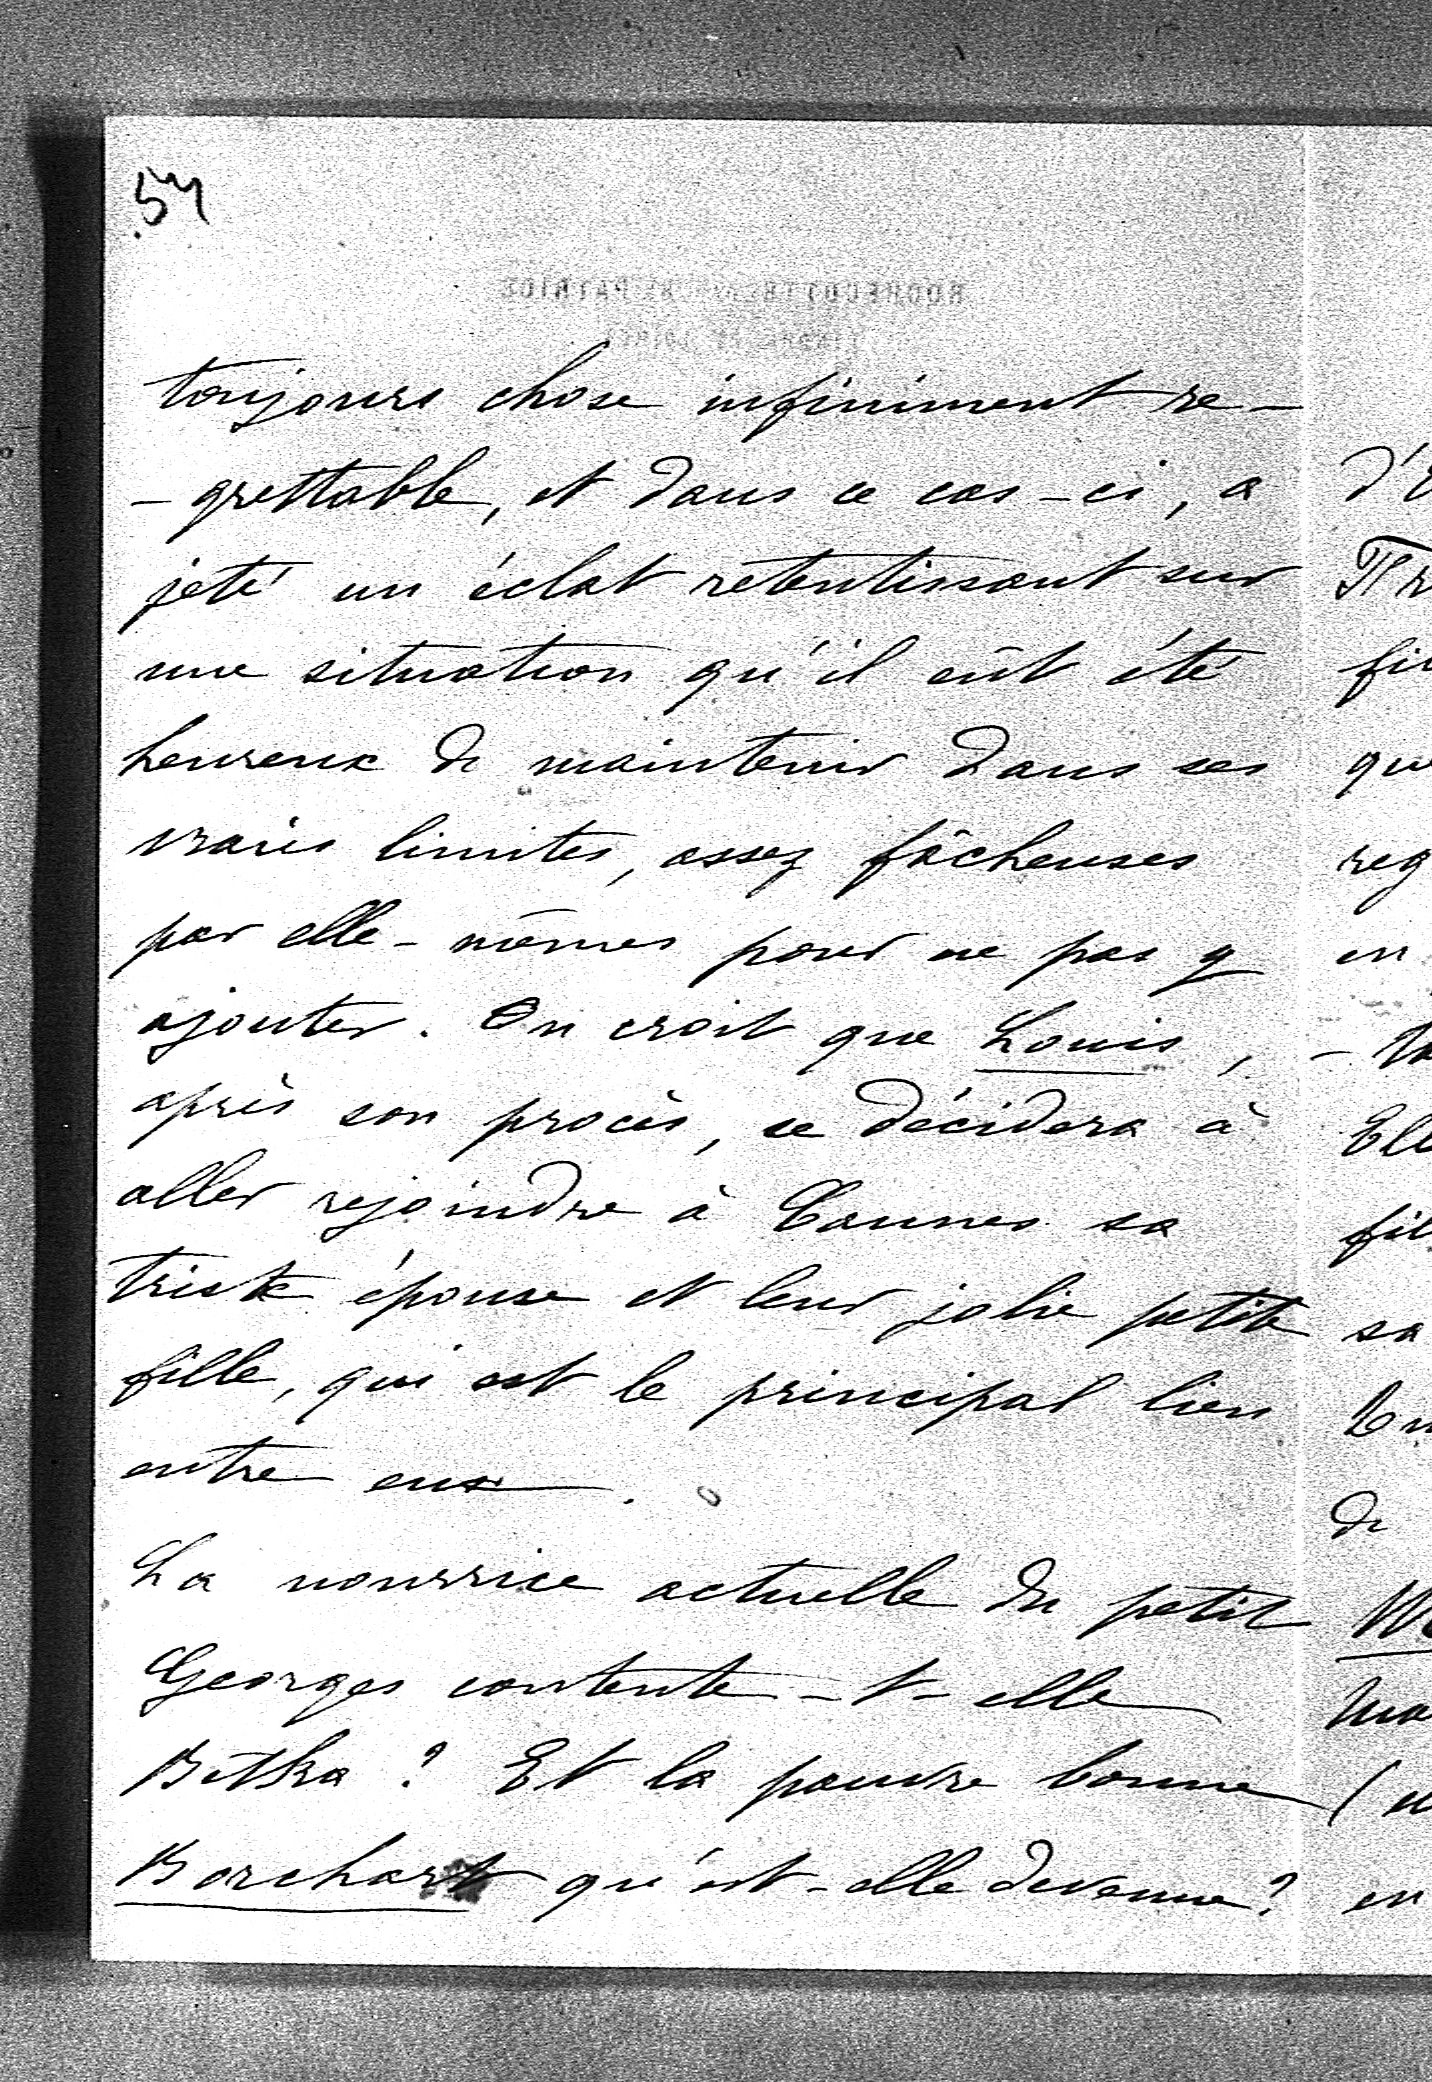 54
toujours chose infiniment re-
-grettable, et dans ce cas-ci, a
jeté un éclat retentissant sur
une situation qu'il eût été
heureux de maintenir dans ses
vraies limites, assez fâcheuses
par elle-mêmes pour ne pas y
ajouter. On croit que Louis,
après son procès, se décidera à
aller rejoindre à Cannes sa
triste épouse et leur jolie petite
fille, qui est le principal lien
entre eux.
La nourrice actuelle du petit
Georges contente-t-elle
Betka? Et la pauvre bonne
Borchart qu'est-elle devenue?